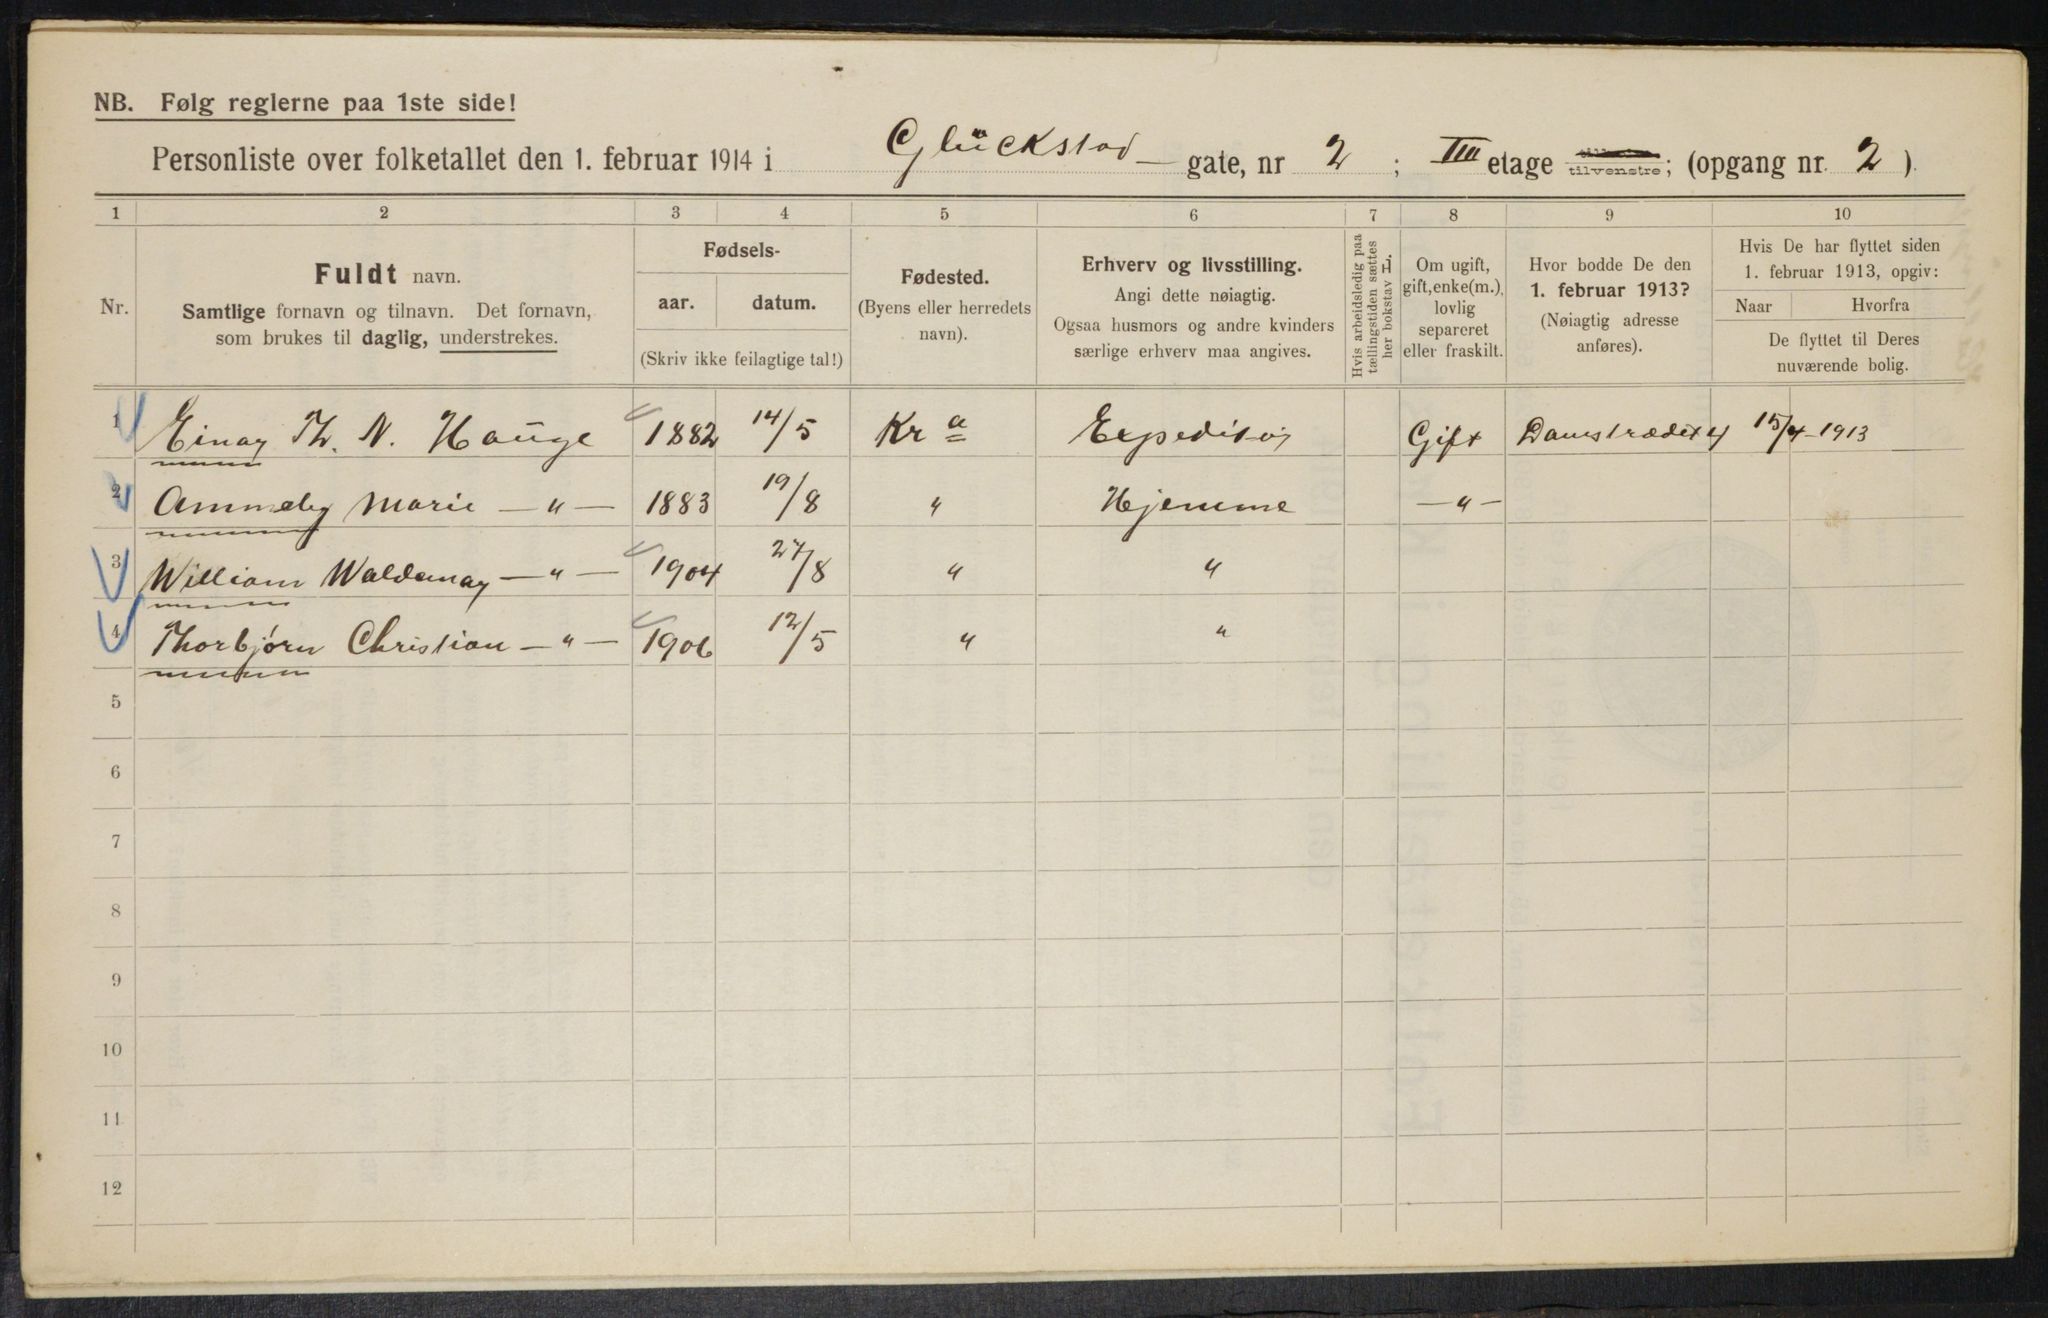 NB. Følg reglerne paa 1ste side!
Personliste over folketallet den 1. februar 1914 i Glückstad — gate, nr 2 ; III etage tilvenstre; (opgang nr. 2 ).
1 2 3 4 5 6 7 8 9 10
Nr.
Fuldt navn.
Samtlige fornavn og tilnavn. Det fornavn,
som brukes til daglig, understrekes.
Fødsels-
aar. datum.
(Skriv ikke feilagtige tal!)
Fødested.
(Byens eller herredets
navn).
Erhverv og livsstilling.
Angi dette nøiagtig.
Ogsaa husmors og andre kvinders
særlige erhverv maa angives.
Hvis arbeidsledig paa
tællingstiden sættes
her bokstav L.
Om ugift,
gift, enke(m.),
lovlig
separeret
eller fraskilt.
Hvor bodde De den
1. februar 1913?
(Nøiagtig adresse
anføres).
Hvis De har flyttet siden
1. februar 1913, opgiv:
Naar Hvorfra
De flyttet til Deres
nuværende bolig.
1 Einar Th. N. Hauge 1882 14/5 Kra Expeditør Gift Damstrædet 4 15/4-1913
2 Marie — " — 1883 19/8 " Hjemme — " —
3 William Waldemar — " — 1904 27/8 " "
4 Thorbjørn Christian — " — 1906 12/5 " "
5
6
7
8
9
10
11
12